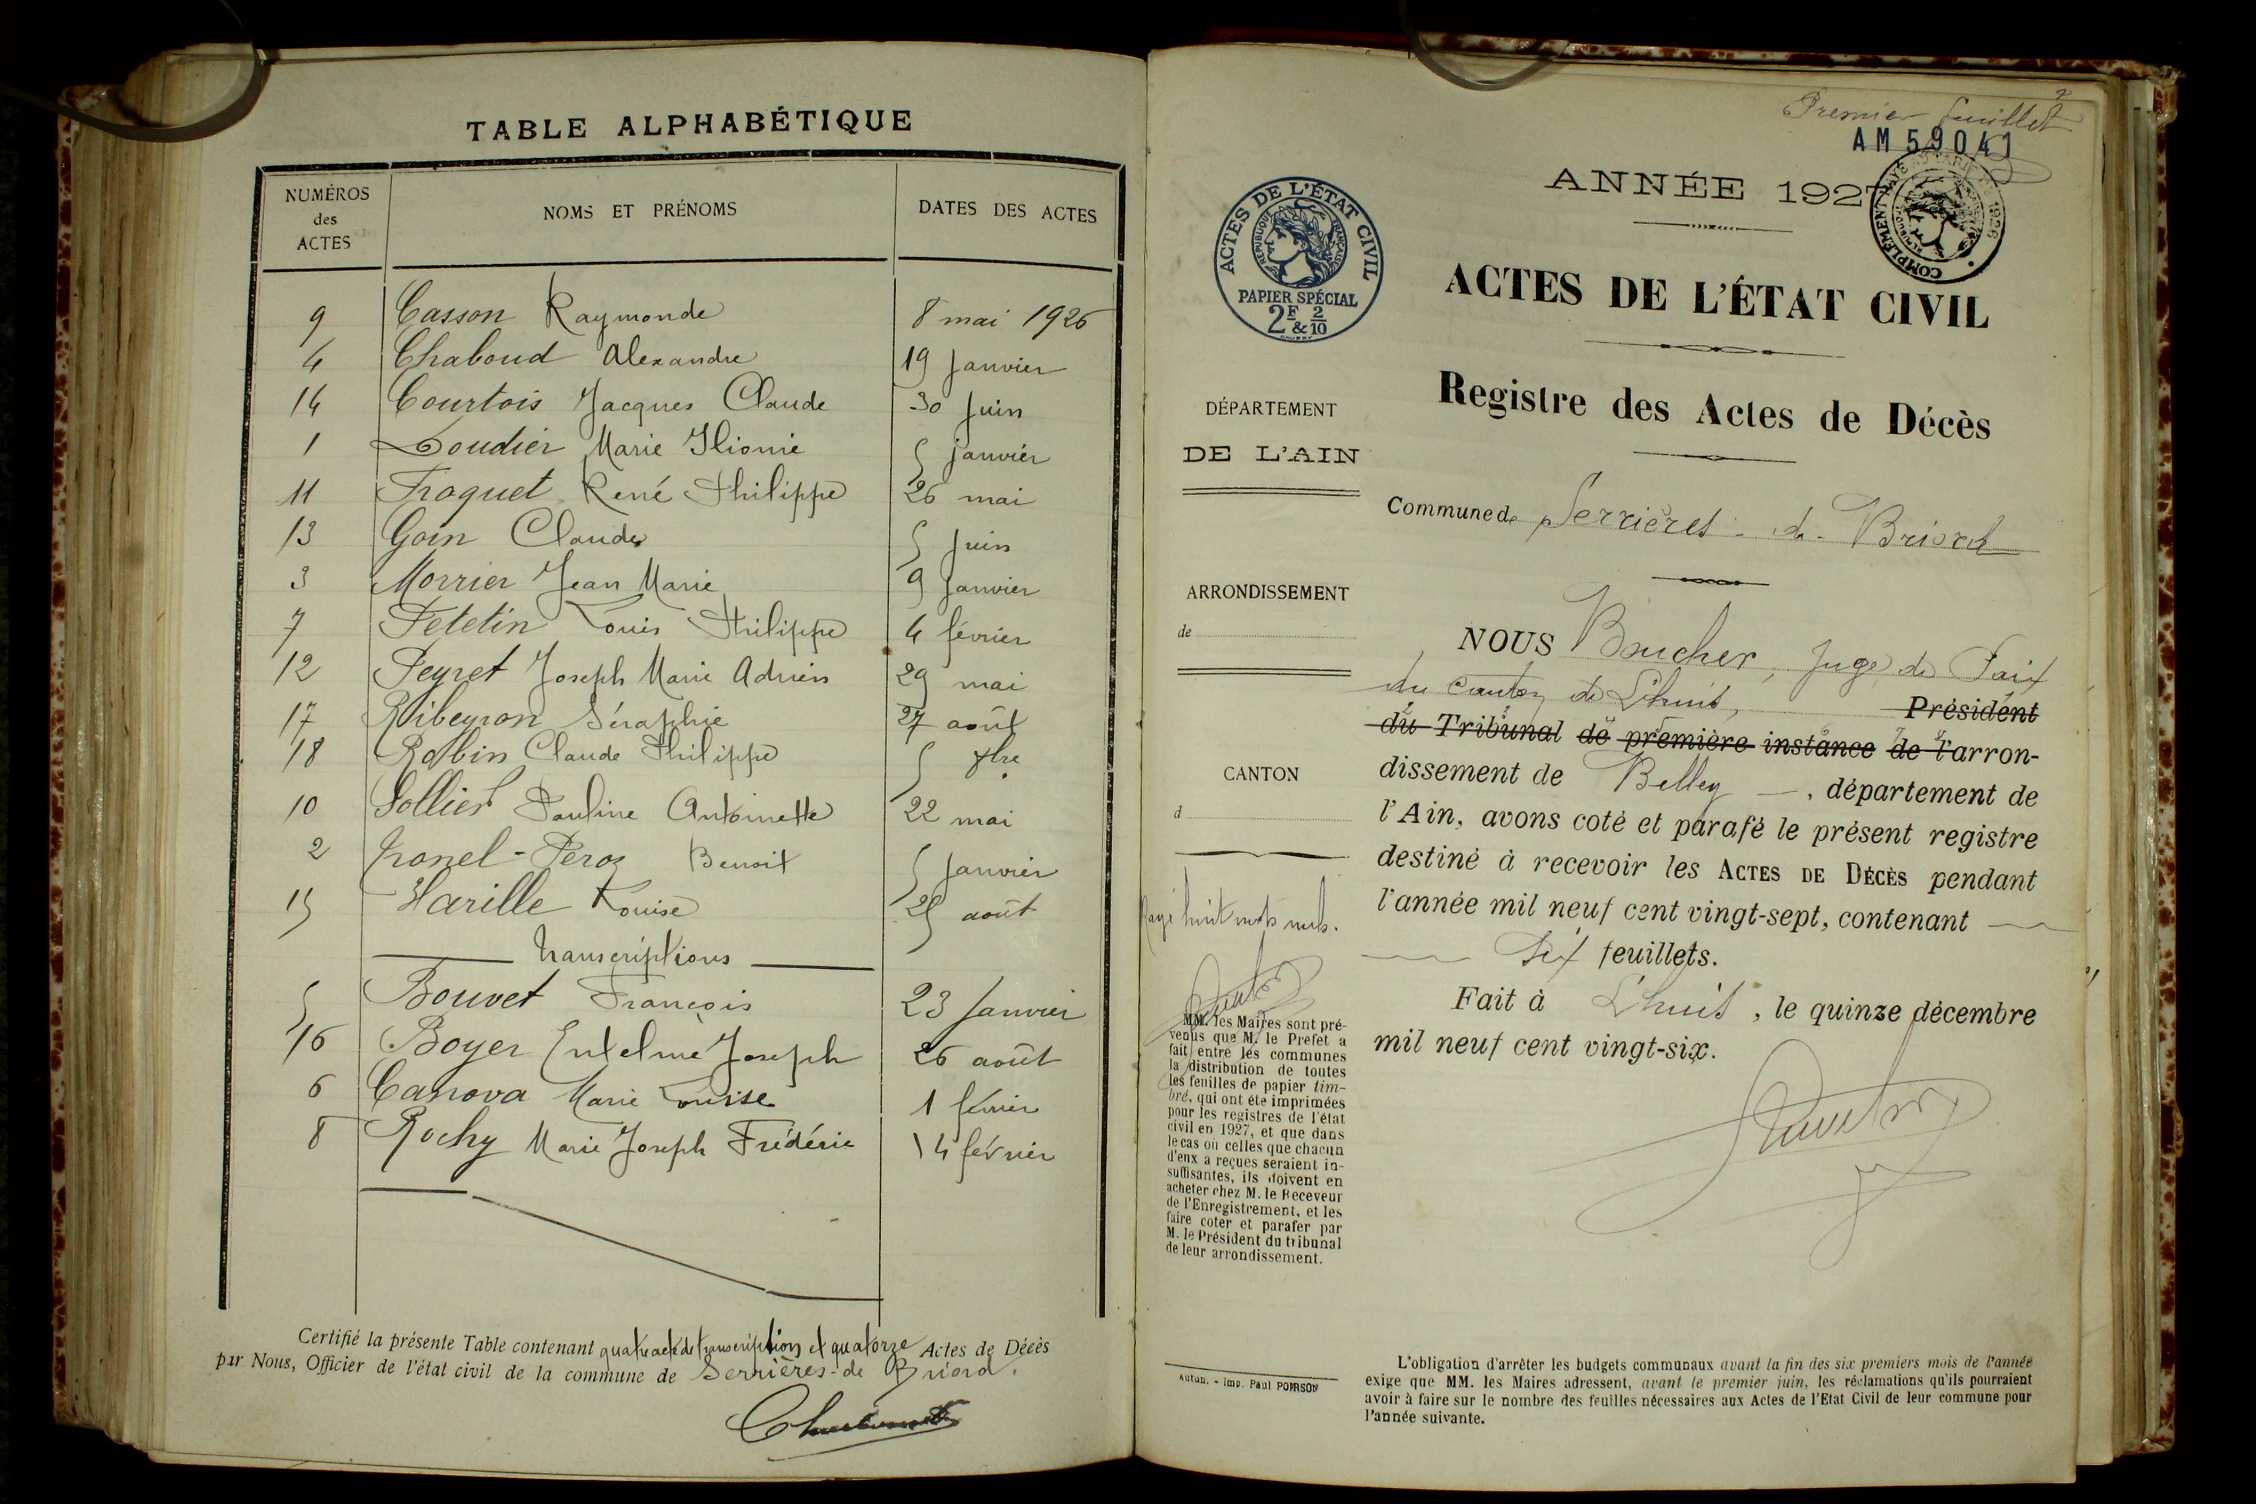 TABLE ALPHABÉTIQUE
NUMÉROS des ACTES NOMS ET PRÉNOMS DATES DES ACTES
9 Casson Raymonde 8 mai 1926
4 Chaboud Alexandre 19 Janvier
14 Courtois Jacques Claude 30 Juin
1 Doudier Marie 5 janvier
11 Froquet René Philippe 26 mai
13 Goin Claude 5 Juin
3 Morrier Jean Marie 9 Janvier
7 Petetin Louis Philippe 4 février
12 Peyret Joseph Marie Adrien 29 mai
17 Ribeyron Séraphie 27 août
18 Robin Claude Philippe 5 7bre
10 Sollier Pauline Antoinette 22 mai
2 Tronel-Peroz Benoit 5 Janvier
15 Varille Louise 25 août
Transcriptions
5 Bouvet François 23 Janvier
16 Boyer Entelme Joseph 26 août
6 Canova Marie Louise 1 février
8 Rochy Marie Joseph Frédéric 14 février
Certifié la présente Table contenant quatre acte de transcription et quatorze Actes de Décès
par Nous, Officier de l'état civil de la commune de Serrières-de Briord.
Premier feuillet
AM 59041
ANNÉE 1927
ACTES DE L'ÉTAT CIVIL
PAPIER SPÉCIAL
2F & 2/10
RÉPUBLIQUE FRANÇAISE
COMPLÉMENT PAYÉ AU TARIF 1926
ACTES DE L'ÉTAT CIVIL
Registre des Actes de Décès
Commune de Serrières-de-Briord
DÉPARTEMENT
DE L'AIN
ARRONDISSEMENT
de
CANTON
d
NOUS Boucher, Juge de Paix
du canton de Lhuis, Président
du Tribunal de première instance de l'arron-
dissement de Belley, département de
l'Ain, avons coté et parafé le présent registre
destiné à recevoir les ACTES DE DÉCÈS pendant
l'année mil neuf cent vingt-sept, contenant
Six feuillets.
Fait à Lhuis, le quinze décembre
mil neuf cent vingt-six.
Rayé huit mots nuls.
MM. les Maires sont pré-
venus que M. le Préfet a
fait entre les communes
la distribution de toutes
les feuilles de papier tim-
bré, qui ont été imprimées
pour les registres de l'état
civil en 1927, et que dans
le cas où celles que chacun
d'eux a reçues seraient in-
suffisantes, ils doivent en
acheter chez M. le Receveur
de l'Enregistrement, et les
faire coter et parafer par
M. le Président du tribunal
de leur arrondissement.
Autun. - Imp. Paul POIRSON
L'obligation d'arrêter les budgets communaux avant la fin des six premiers mois de l'année
exige que MM. les Maires adressent, avant le premier juin, les réclamations qu'ils pourraient
avoir à faire sur le nombre des feuilles nécessaires aux Actes de l'Etat Civil de leur commune pour
l'année suivante.